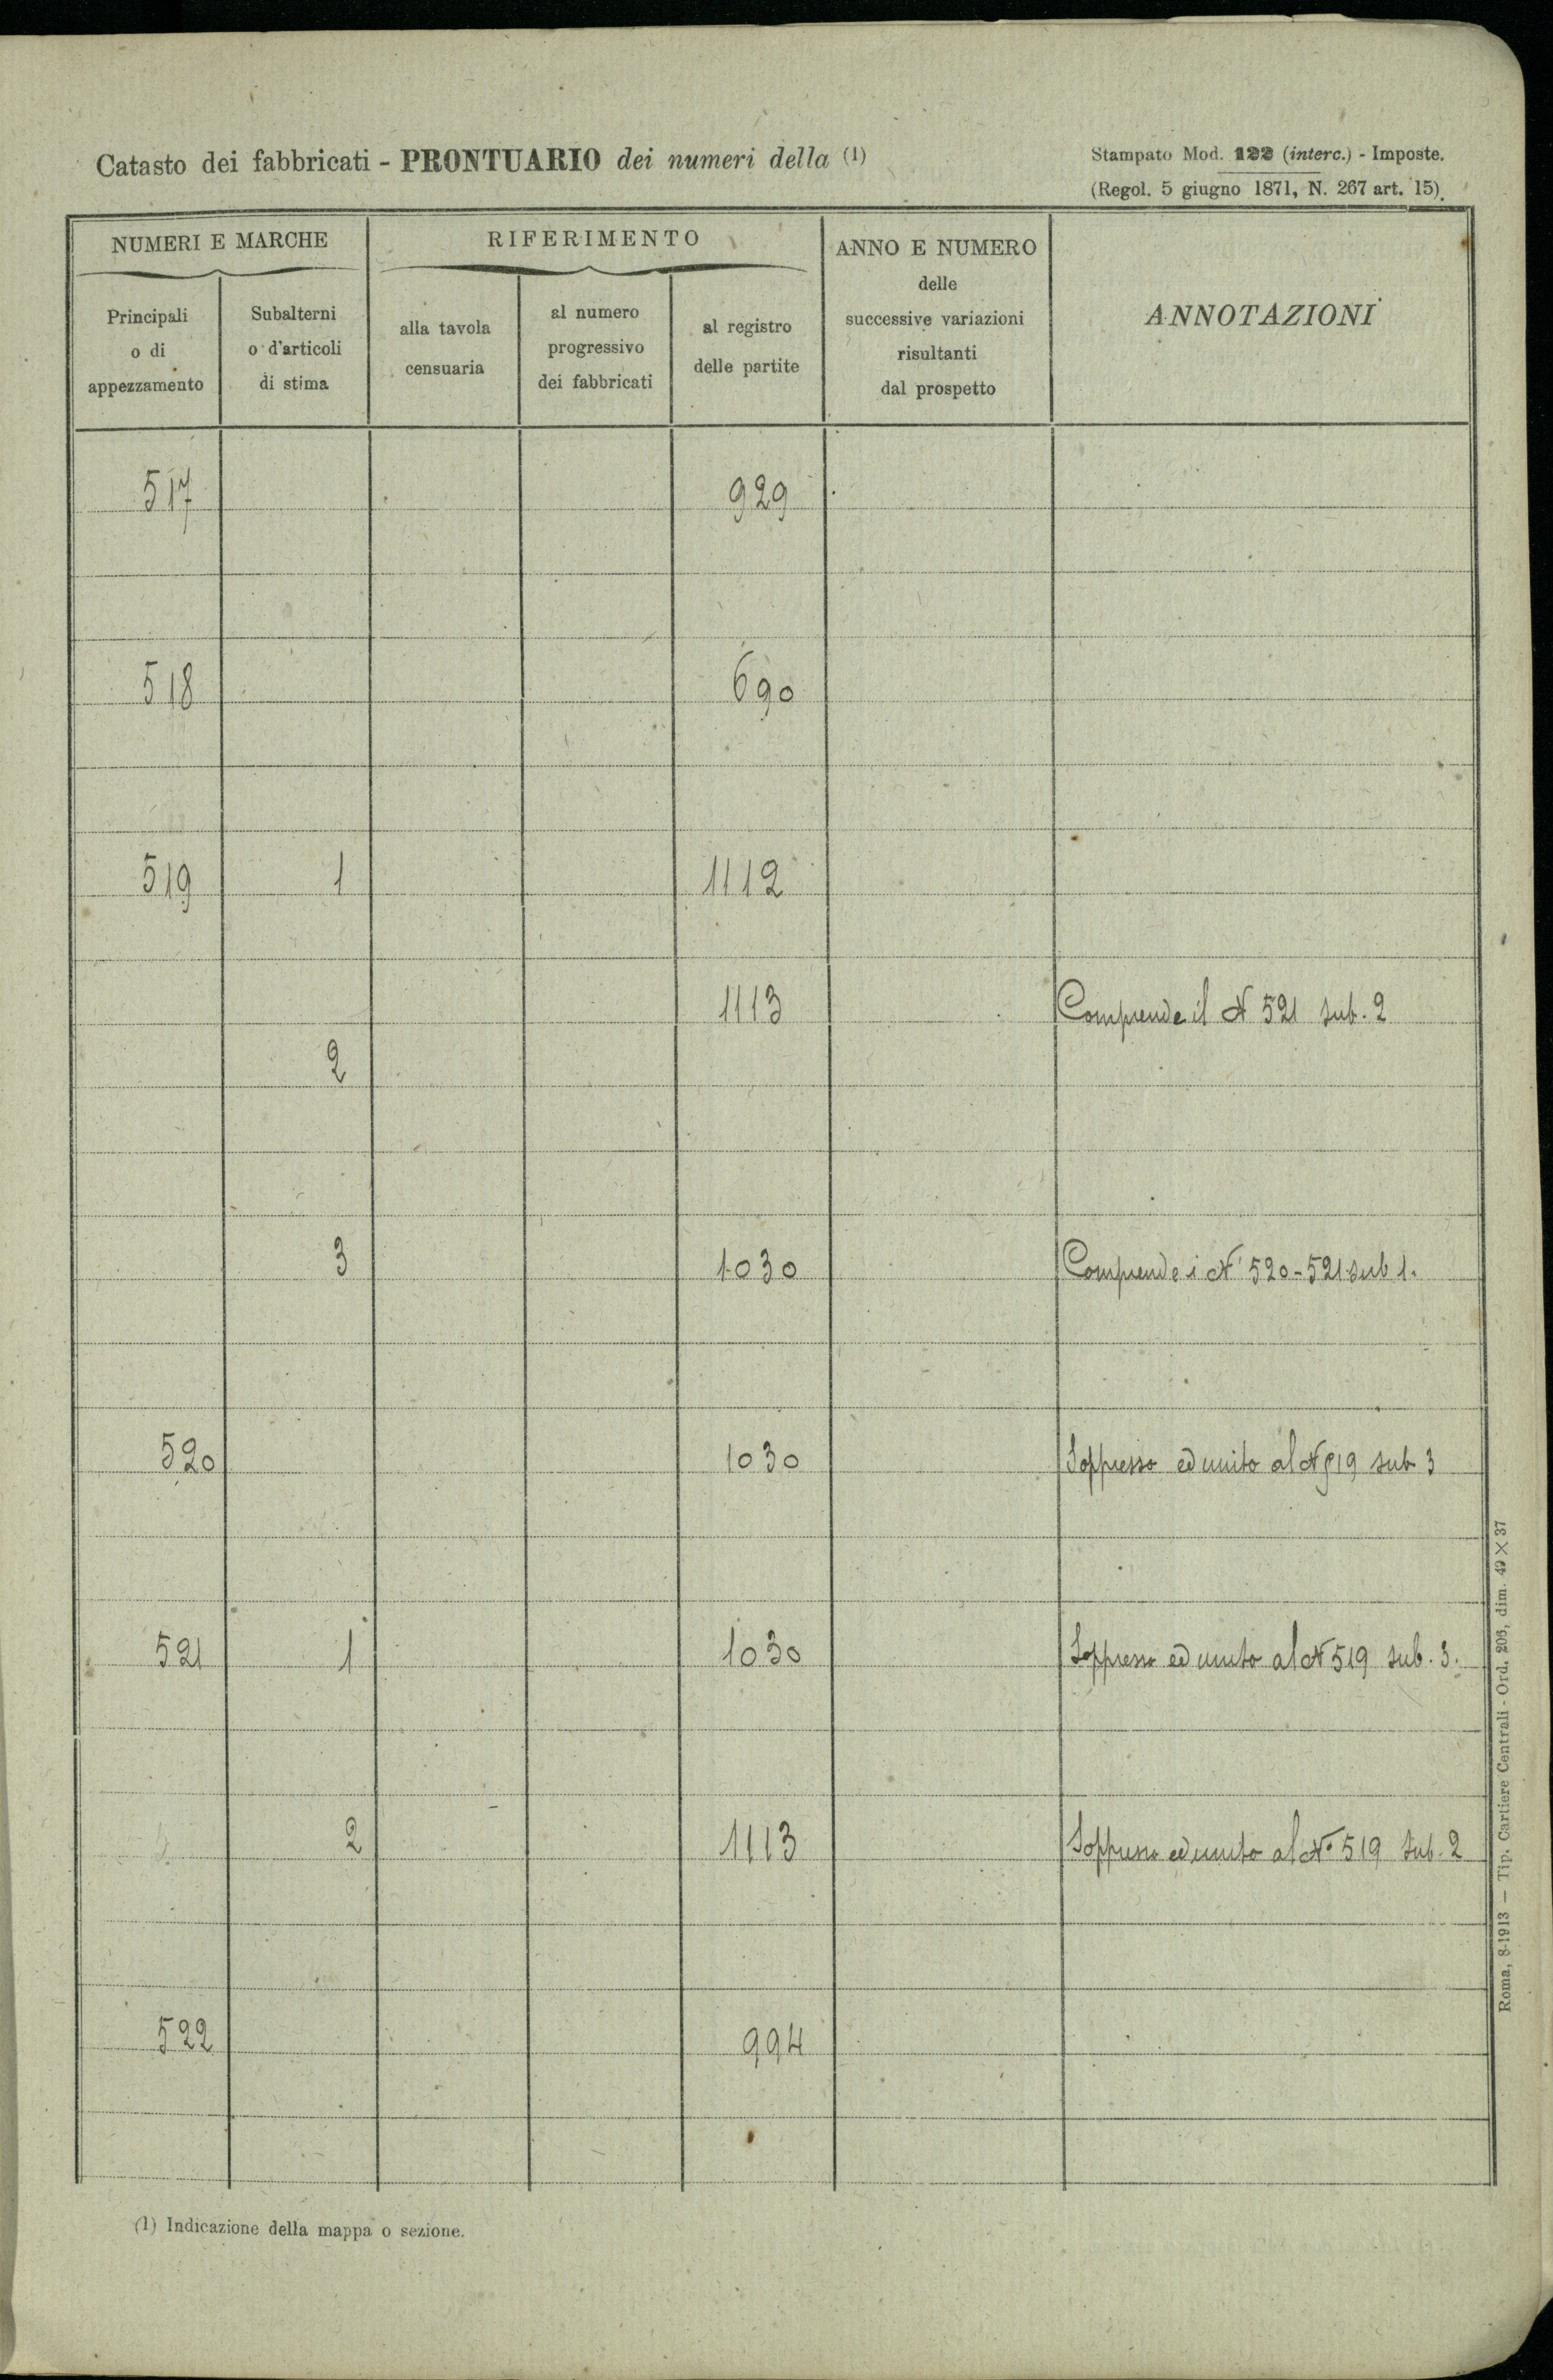 Catasto dei fabbricati - PRONTUARIO dei numeri della (1)
Stampato Mod. 122 (interc.) - Imposte.
(Regol. 5 giugno 1871, N. 267 art. 15).
NUMERI E MARCHE
RIFERIMENTO
ANNO E NUMERO
delle
successive variazioni
risultanti
dal prospetto
ANNOTAZIONI
Principali
o di
appezzamento
Subalterni
o d'articoli
di stima
alla tavola
censuaria
al numero
progressivo
dei fabbricati
al registro
delle partite
517 929
518 690
519 1 1112
1113 Comprende il N 521 sub. 2
2
3 1030 Comprende i Nⁱ 520-521 sub 1.
520 1030 Soppresso ed unito al N 519 sub 3
521 1 1030 Soppresso ed unito al N 519 sub. 3.
2 1113 Soppresso ed unito al N° 519 sub. 2
522 994
(1) Indicazione della mappa o sezione.
Roma, 8-1913 — Tip. Cartiere Centrali - Ord. 206, dim. 49 × 37